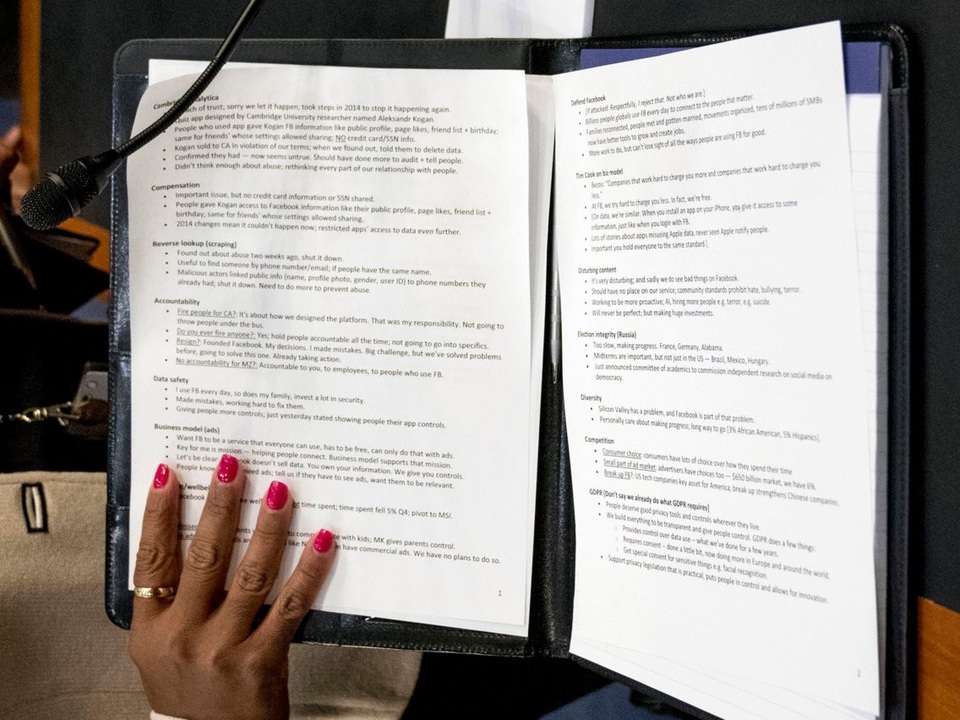 Cambridge Analytica
of trust; sorry we let it happen; took steps in 2014 to stop it happening again.
Quiz app designed by Cambridge University researcher named Aleksandr Kogan.
People who used app gave Kogan FB information like public profile, page likes, friend list + birthday;
same for friends' whose settings allowed sharing; NO credit card/SSN info.
Kogan sold to CA in violation of our terms; when we found out, told them to delete data.
Confirmed they had — now seems untrue. Should have done more to audit + tell people.
Didn't think enough about abuse; rethinking every part of our relationship with people.
Compensation
Important issue, but no credit card information or SSN shared.
People gave Kogan access to Facebook information like their public profile, page likes, friend list +
birthday; same for friends' whose settings allowed sharing.
2014 changes mean it couldn't happen now; restricted apps' access to data even further.
Reverse lookup (scraping)
Found out about abuse two weeks ago, shut it down.
Useful to find someone by phone number/email; if people have the same name.
Malicious actors linked public info (name, profile photo, gender, user ID) to phone numbers they
already had; shut it down. Need to do more to prevent abuse.
Accountability
Fire people for CA?: It's about how we designed the platform. That was my responsibility. Not going to
throw people under the bus.
Do you ever fire anyone?: Yes; hold people accountable all the time; not going to go into specifics.
Resign?: Founded Facebook. My decisions. I made mistakes. Big challenge, but we've solved problems
before, going to solve this one. Already taking action.
No accountability for MZ?: Accountable to you, to employees, to people who use FB.
Data safety
I use FB every day, so does my family, invest a lot in security.
Made mistakes, working hard to fix them.
Giving people more controls; just yesterday stated showing people their app controls.
Business model (ads)
Want FB to be a service that everyone can use, has to be free, can only do that with ads.
Key for me is mission — helping people connect. Business model supports that mission.
Let's be clear: doesn't sell data. You own your information. We give you controls.
People know need ads; tell us if they have to see ads, want them to be relevant.
time spent; time spent fell 5% Q4; pivot to MSI.
with kids; MK gives parents control.
have commercial ads. We have no plans to do so.
1
Defend Facebook
[If attacked: Respectfully, I reject that. Not who we are.]
Billions people globally use FB every day to connect to the people that matter.
Families reconnected, people met and gotten married, movements organized, tens of millions of SMBs
now have better tools to grow and create jobs.
More work to do, but can't lose sight of all the ways people are using FB for good.
Tim Cook on biz model
Bezos: "Companies that work hard to charge you more and companies that work hard to charge you
less."
At FB, we try hard to charge you less. In fact, we're free.
[On data, we're similar. When you install an app on your iPhone, you give it access to some
information, just like when you login with FB.
Lots of stories about apps misusing Apple data, never seen Apple notify people.
Important you hold everyone to the same standard.]
Disturbing content
It's very disturbing; and sadly we do see bad things on Facebook.
Should have no place on our service; community standards prohibit hate, bullying, terror.
Working to be more proactive; AI, hiring more people e.g. terror, e.g. suicide.
Will never be perfect; but making huge investments.
Election integrity (Russia)
Too slow, making progress. France, Germany, Alabama.
Midterms are important, but not just in the US — Brazil, Mexico, Hungary.
Just announced committee of academics to commission independent research on social media on
democracy.
Diversity
Silicon Valley has a problem, and Facebook is part of that problem.
Personally care about making progress; long way to go [3% African American, 5% Hispanics].
Competition
Consumer choice: consumers have lots of choice over how they spend their time.
Small part of ad market: advertisers have choices too — $650 billion market, we have 6%.
Break up FB?: US tech companies key asset for America; break up strengthens Chinese companies.
GDPR [Don't say we already do what GDPR requires]
People deserve good privacy tools and controls wherever they live.
We build everything to be transparent and give people control. GDPR does a few things:
Provides control over data use – what we've done for a few years.
Requires consent – done a little bit, now doing more in Europe and around the world.
Get special consent for sensitive things e.g. facial recognition.
Support privacy legislation that is practical, puts people in control and allows for innovation.
2